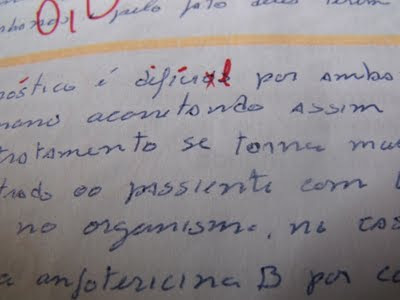 0,0
pelo fato deles terem
nóstico é difícil por ambo
mano acoretando assim
tratamento se torna ma
trado ao passiente com
no organismo, no cas
a anfotericina B por co